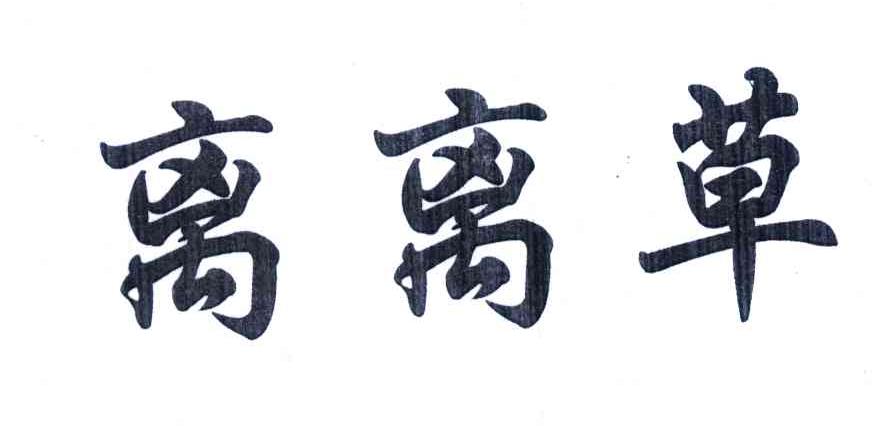 离离草